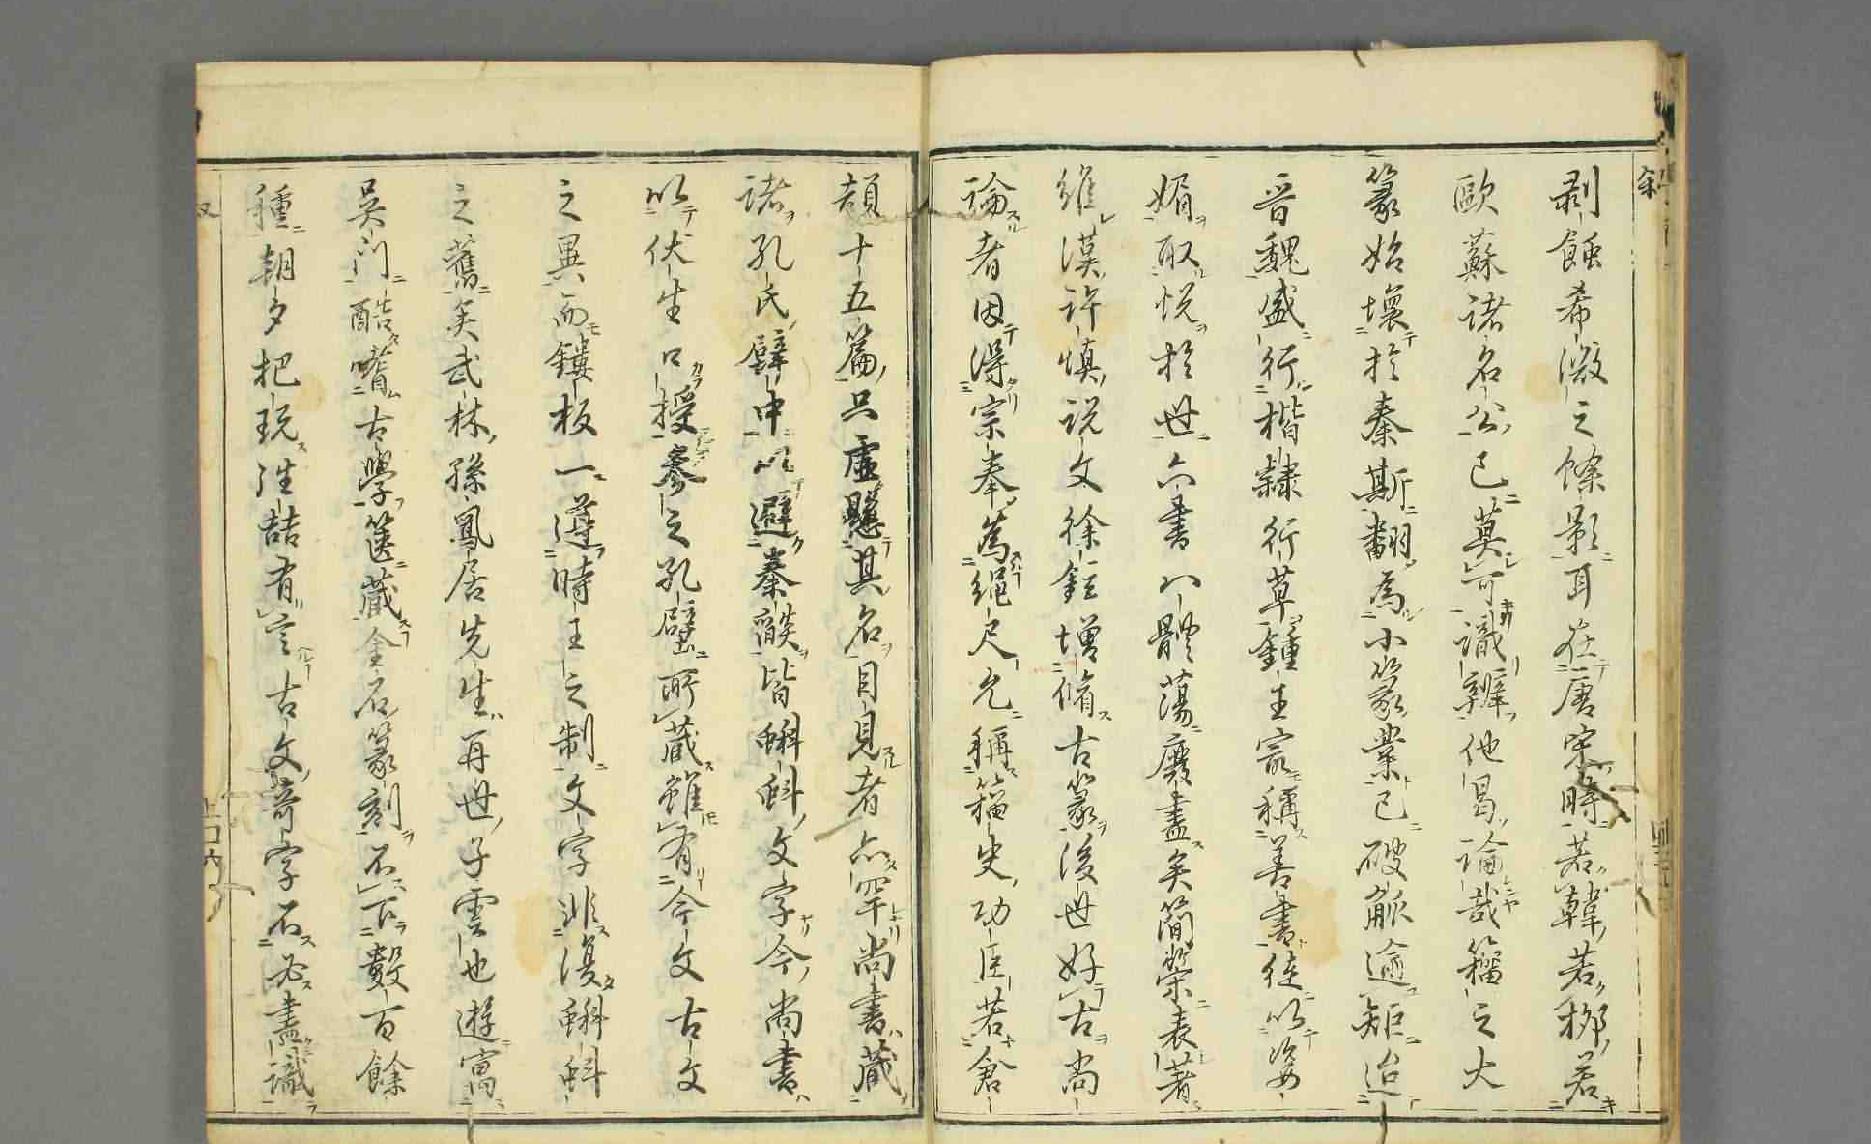 剥蝕希微之餘影耳在唐宋時若韓若柳若
歐蘇諸名公已莫可識辨他曷論哉籀之大
篆始壞於秦斯翻為小篆業已破觚逾矩迨
晋魏盛行楷隸行草鍾王最稱善書徒以姿
媚取悦於世六書八體蕩廢盡矣簡策表著
維漢許慎説文徐鉉增脩古篆後世好古尚
論者因得宗奉為繩尺允稱籀史功臣若倉
頡十五篇只虛懸其名目見者亦罕尚書藏
諸孔氏壁中以避秦燄皆蝌蚪文字今尚書
以伏生口授參之孔壁所藏雖有今文古文
之異而鏤板一遵時王之制文字非復蝌蚪
之舊矣武林孫鳳居先生再世子雲也遊寓
吳門酷嗜古學篋藏金石篆刻不下數百餘
種朝夕把玩詰有言古文奇字不必盡識